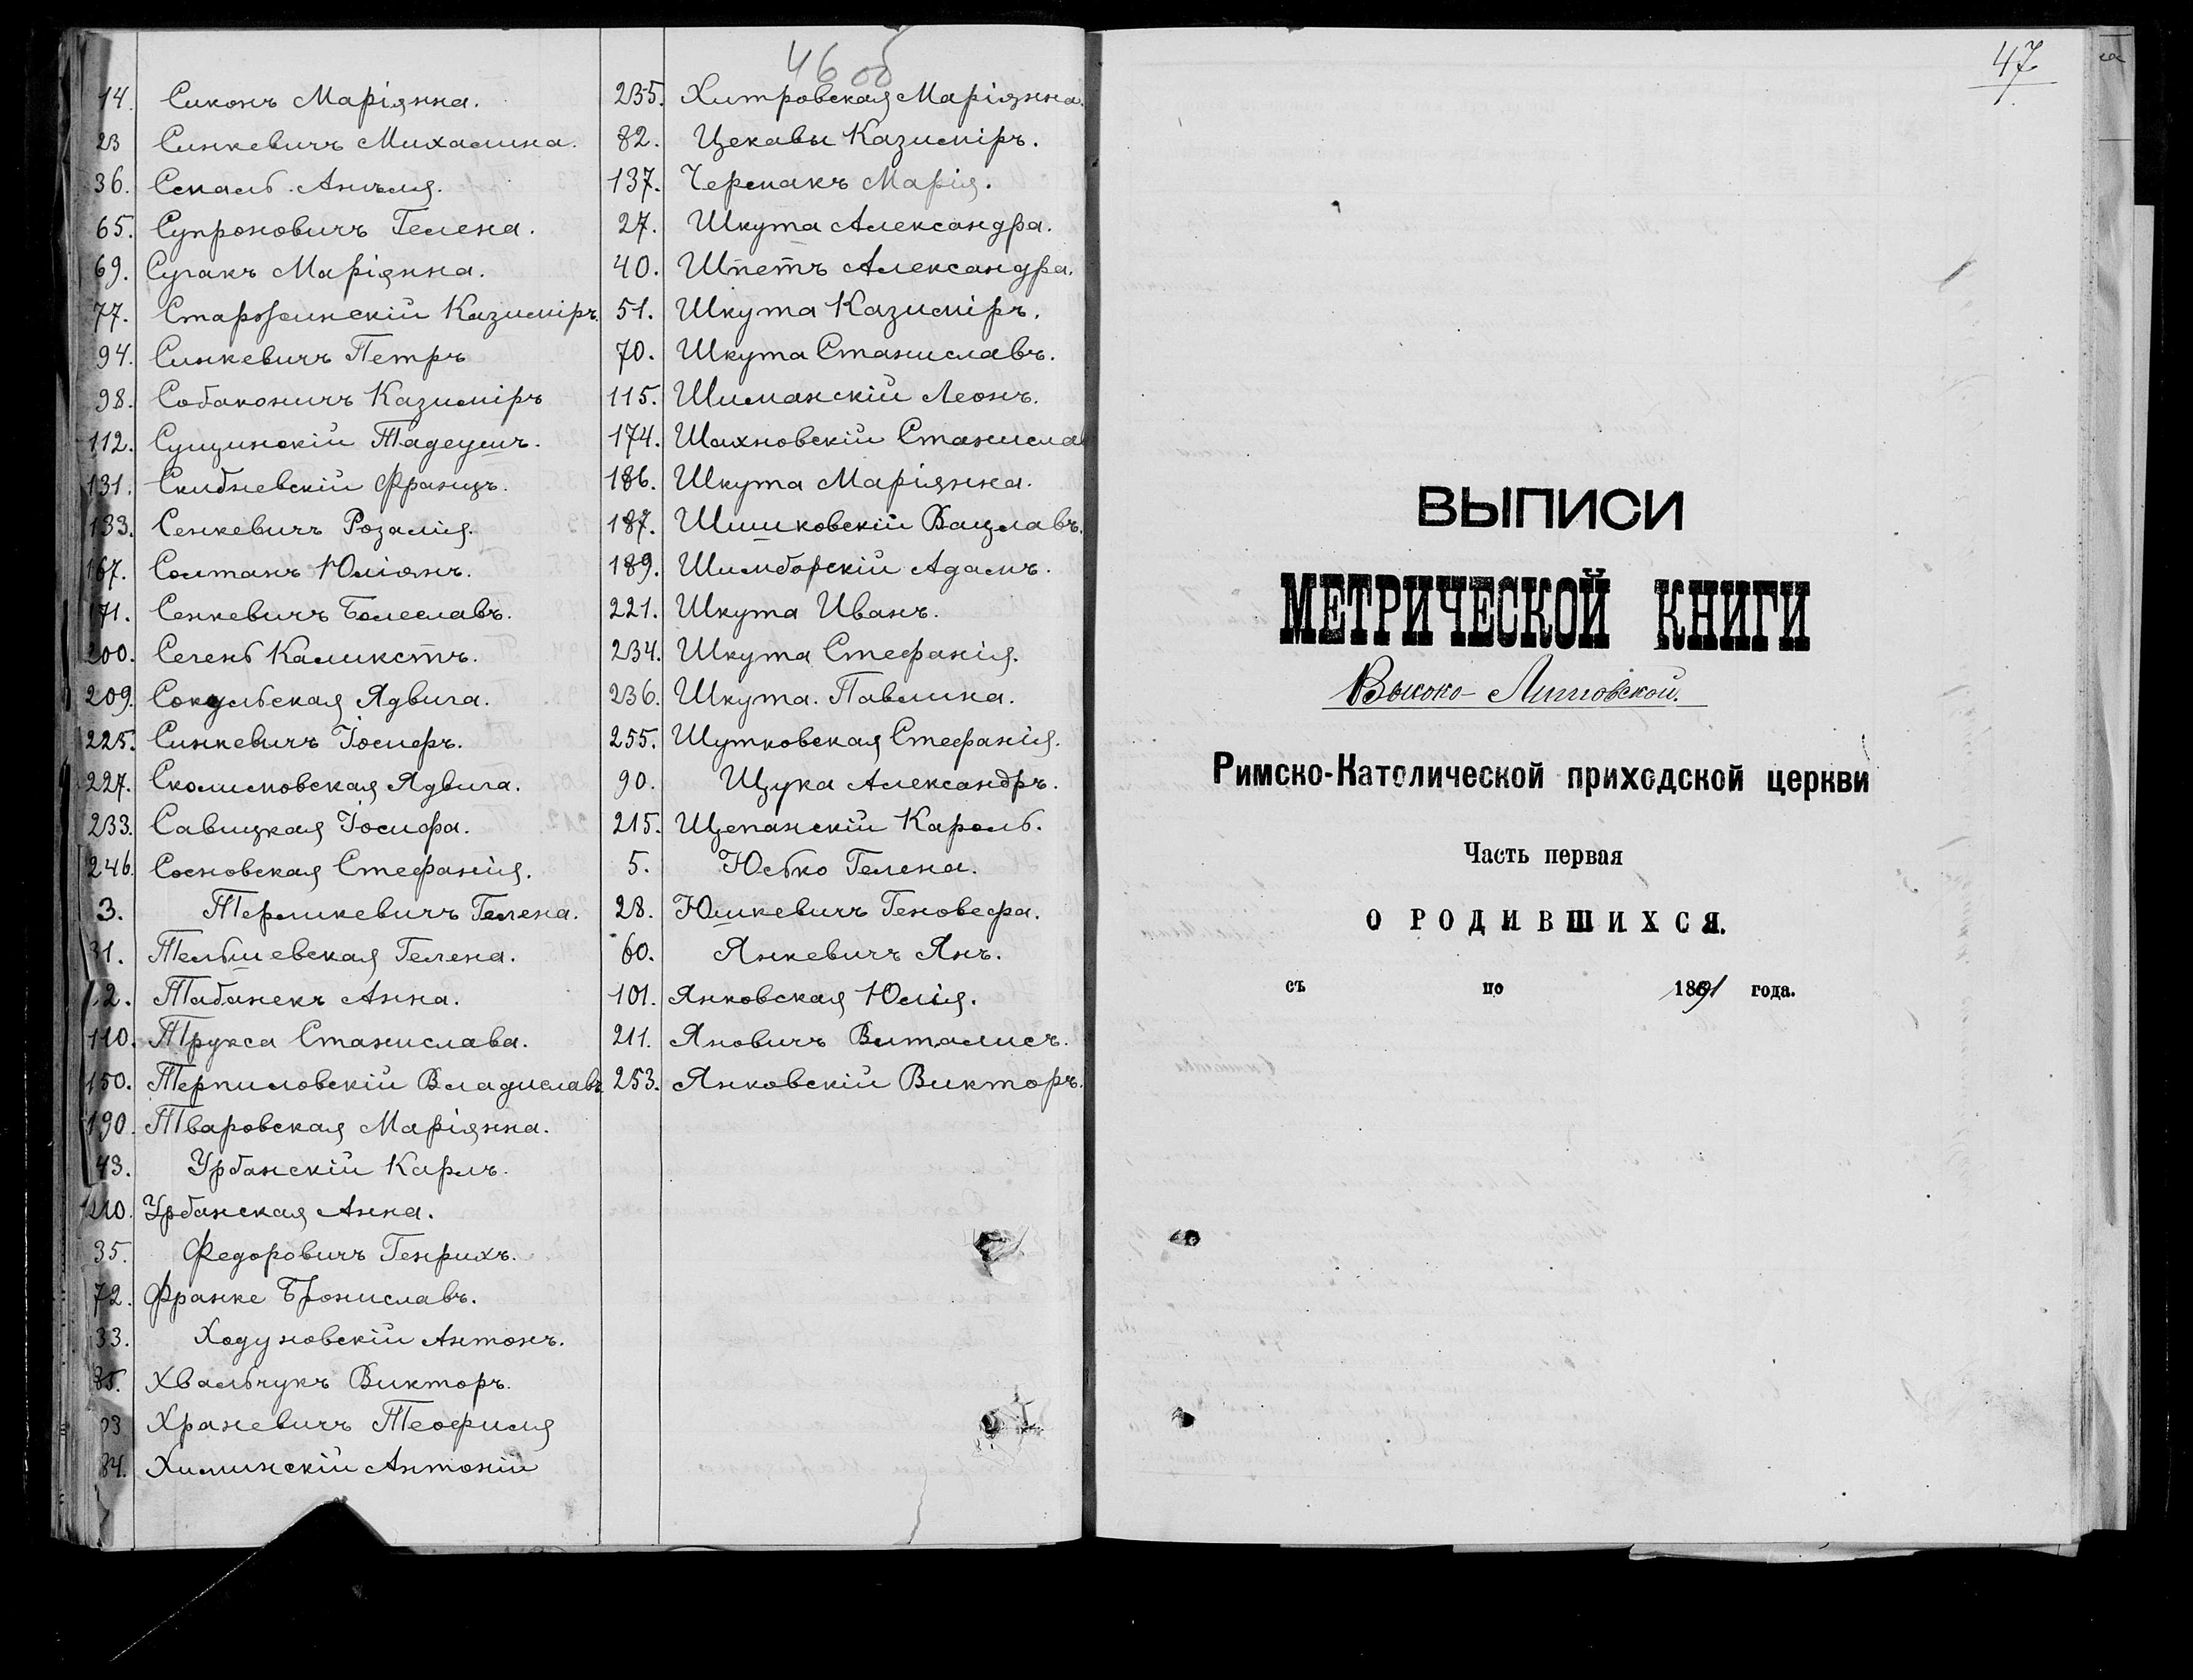 46 об
14. Сиконъ Маріянна.
23 Синкевичъ Михалина.
36. Скаль. Анѣля.
65. Супроновичъ Гелена.
69. Сугакъ Маріянна.
77. Старжинскій Казиміръ.
94. Синкевичъ Петръ
98. Собаконичъ Казиміръ
112. Сущинскій Тадеушъ.
131. Скибневскій Францъ.
133. Сенкевичъ Розалія.
167. Солтанъ Юліянъ.
171. Сенкевичъ Болеславъ.
200. Сегень Каликстъ.
209. Сокульская Ядвига.
225. Синкевичъ Іосифъ.
227. Сколимовская Ядвига.
233. Савицкая Іосифа.
246. Сосновская Стефанія.
3. Термикевичъ Гелена.
31. Тельшевская Гелена.
2. Табанекъ Анна.
110. Трукса Станислава.
150. Терпиловскій Владиславъ
190. Тваровская Маріянна.
43. Урбанскій Карлъ.
210. Урбанская Анна.
35. Федоровичъ Генрихъ.
72. Франке Брониславъ.
33. Ходуновскій Антонъ.
85. Хвальчукъ Викторъ.
Храневичъ Теофиля
84. Хилинскій Антоній
235. Хитровская Маріянна.
82. Цекавы Казиміръ.
137. Чермакъ Марія.
27. Шкута Александра.
40. Шпетъ Александра.
51. Шкута Казиміръ.
70. Шкута Станиславъ.
115. Шиманскій Леонъ.
174. Шахновскій Станислав
186. Шкута Маріянна.
187. Шишковскій Вацлавъ.
189. Шимборскій Адамъ.
221. Шкута Иванъ.
234. Шкута Стефанія.
236. Шкута. Павлина.
255. Шутковская Стефанія.
90. Щука Александръ.
215. Щепанскій Кароль.
5. Юсько Гелена.
28. Юшкевичъ Геновефа.
60. Янкевичъ Янъ.
101. Янковская Юлія.
211. Яновичъ Виталисъ.
253. Янковскій Викторъ.
47
ВЫПИСИ
МЕТРИЧЕСКОЙ КНИГИ
Высоко-Литовской.
Римско-Католической приходской церкви
Часть первая
О РОДИВШИХСЯ.
съ по 1891 года.